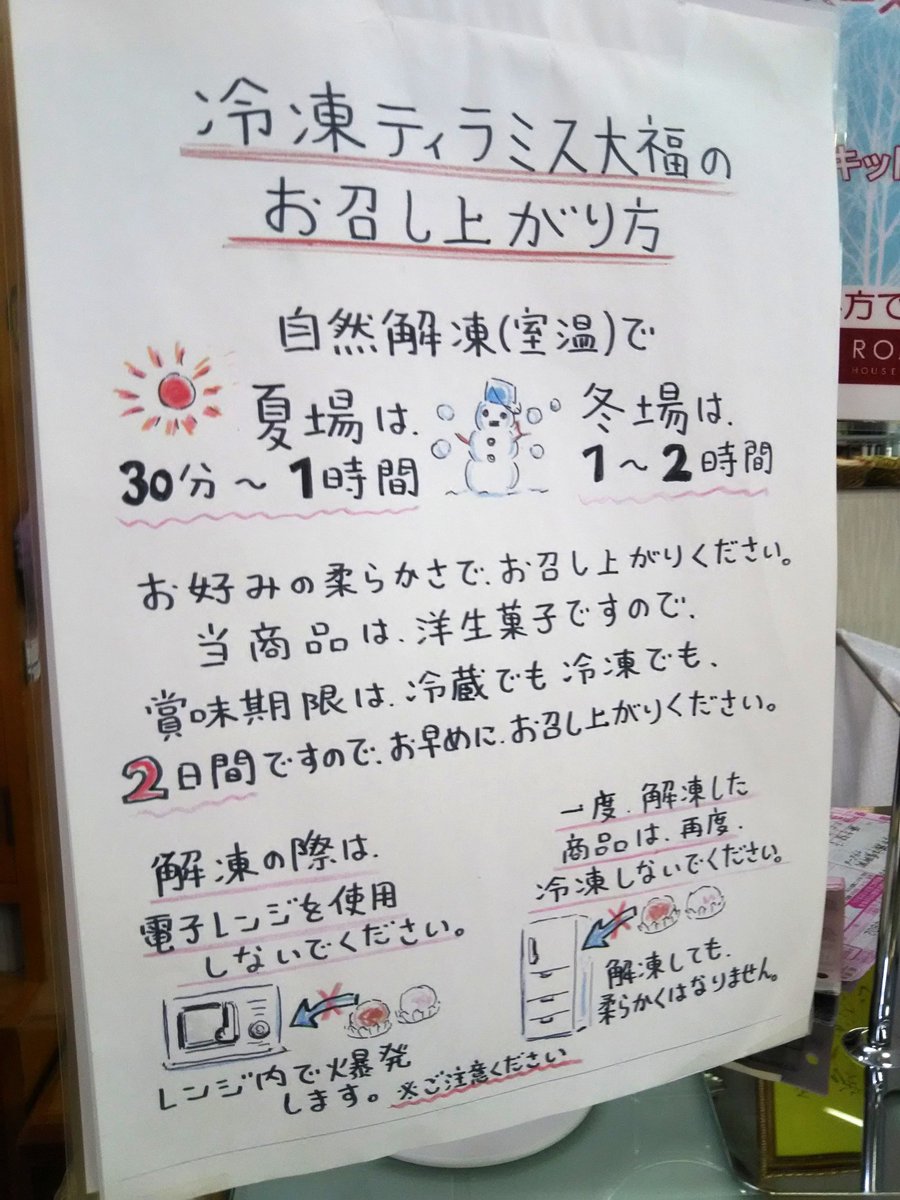 冷凍ティラミス大福の
お召し上がり方
自然解凍(室温)で
夏場は、
30分～1時間
冬場は、
1～2時間
お好みの柔らかさで、お召し上がりください。
当商品は、洋生菓子ですので、
賞味期限は、冷蔵でも冷凍でも、
2日間ですので、お早めに、お召し上がりください。
解凍の際は、
電子レンジを使用
しないでください。
レンジ内で爆発
します。※ご注意ください
一度、解凍した
商品は、再度、
冷凍しないでください。
解凍しても、
柔らかくはなりません。
キッ
方で
RO
HOUSE